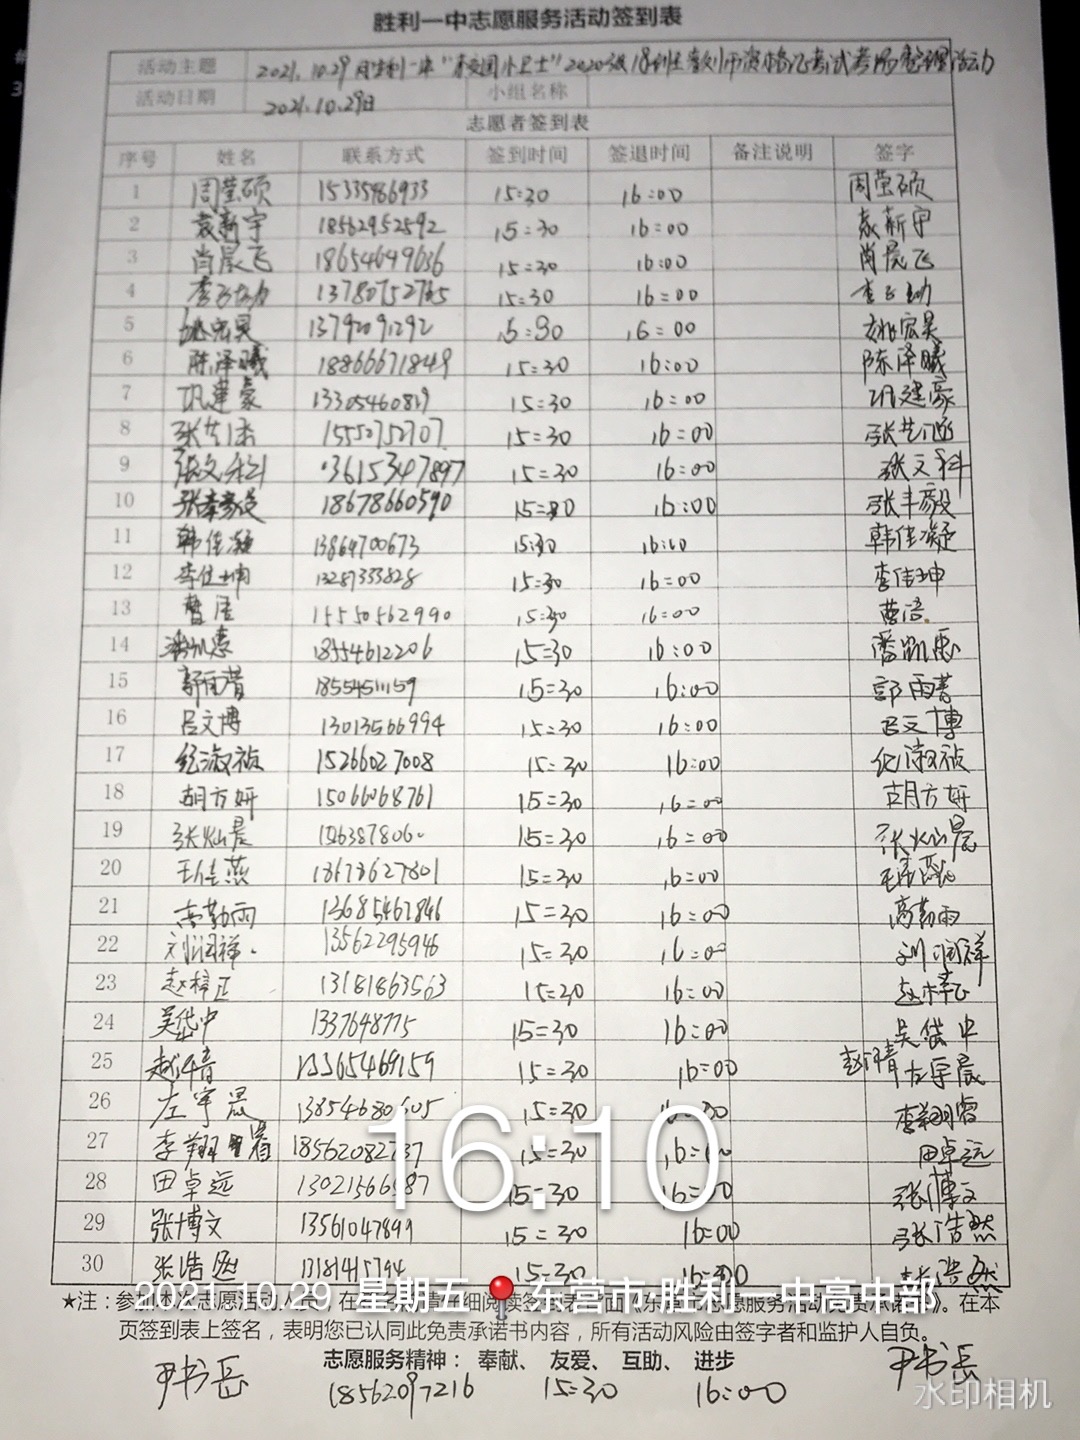 胜利一中志愿服务活动签到表
活动主题 2021.10.29 胜利一中 2020级 考试考场整理活动
活动日期 2021.10.29日 小组名称
志愿者签到表
序号 姓名 联系方式 签到时间 签退时间 备注说明 签字
1 周莹硕 15335486933 15:30 16:00 周莹硕
2 袁新宇 18562952592 15:30 16:00 袁新宇
3 肖晨飞 18654649636 15:30 16:00 肖晨飞
4 13780752765 15:30 16:00
5 姚宏昊 13792091292 15:30 16:00 姚宏昊
6 陈泽曦 18866671849 15:30 16:00 陈泽曦
7 巩建豪 13305460819 15:30 16:00 巩建豪
8 15552752707 15:30 16:00 张艺涵
9 张文科 13615347897 15:30 16:00 张文科
10 18678660590 15:30 16:00 张丰毅
11 韩佳凝 13864700673 15:30 16:00 韩佳凝
12 李佳坤 13287333828 15:30 16:00 李佳坤
13 曹语 15550562990 15:30 16:00 曹语
14 潘凯惠 18554612206 15:30 16:00 潘凯惠
15 郭雨菁 15:30 16:00 郭雨菁
16 吕文博 13013566994 15:30 16:00 吕文博
17 纪淑祯 15266027008 15:30 16:00 纪淑祯
18 胡方妍 15066068761 15:30 16:00 胡方妍
19 张灿晨 15:30 16:00 张灿晨
20 王佳燕 15:30 16:00
21 高勤雨 13685461846 15:30 16:00 高勤雨
22 刘润祥 13562295946 15:30 16:00 刘润祥
23 赵梓正 13181863563 15:30 16:00 赵梓正
24 吴岱中 15:30 16:00 吴岱中
25 13365469159 15:30 16:00 左宇晨
26 左宇晨 15:30 16:00 李翔睿
27 李翔睿 15:30 16:00 田卓远
28 田卓远 15:30 16:00 张博文
29 张博文 13561047899 15:30 16:00 张浩然
30 张浩然 15:30 16:00 张浩然
16:10
2021.10.29 星期五 东营市·胜利一中高中部
★注：参加本次志愿活动人员，在签字。在本
页签到表上签名，表明您已认同此免责承诺书内容，所有活动风险由签字者和监护人自负。
志愿服务精神：奉献、友爱、互助、进步
尹书岳 18562097216 15:30 16:00 尹书岳
水印相机